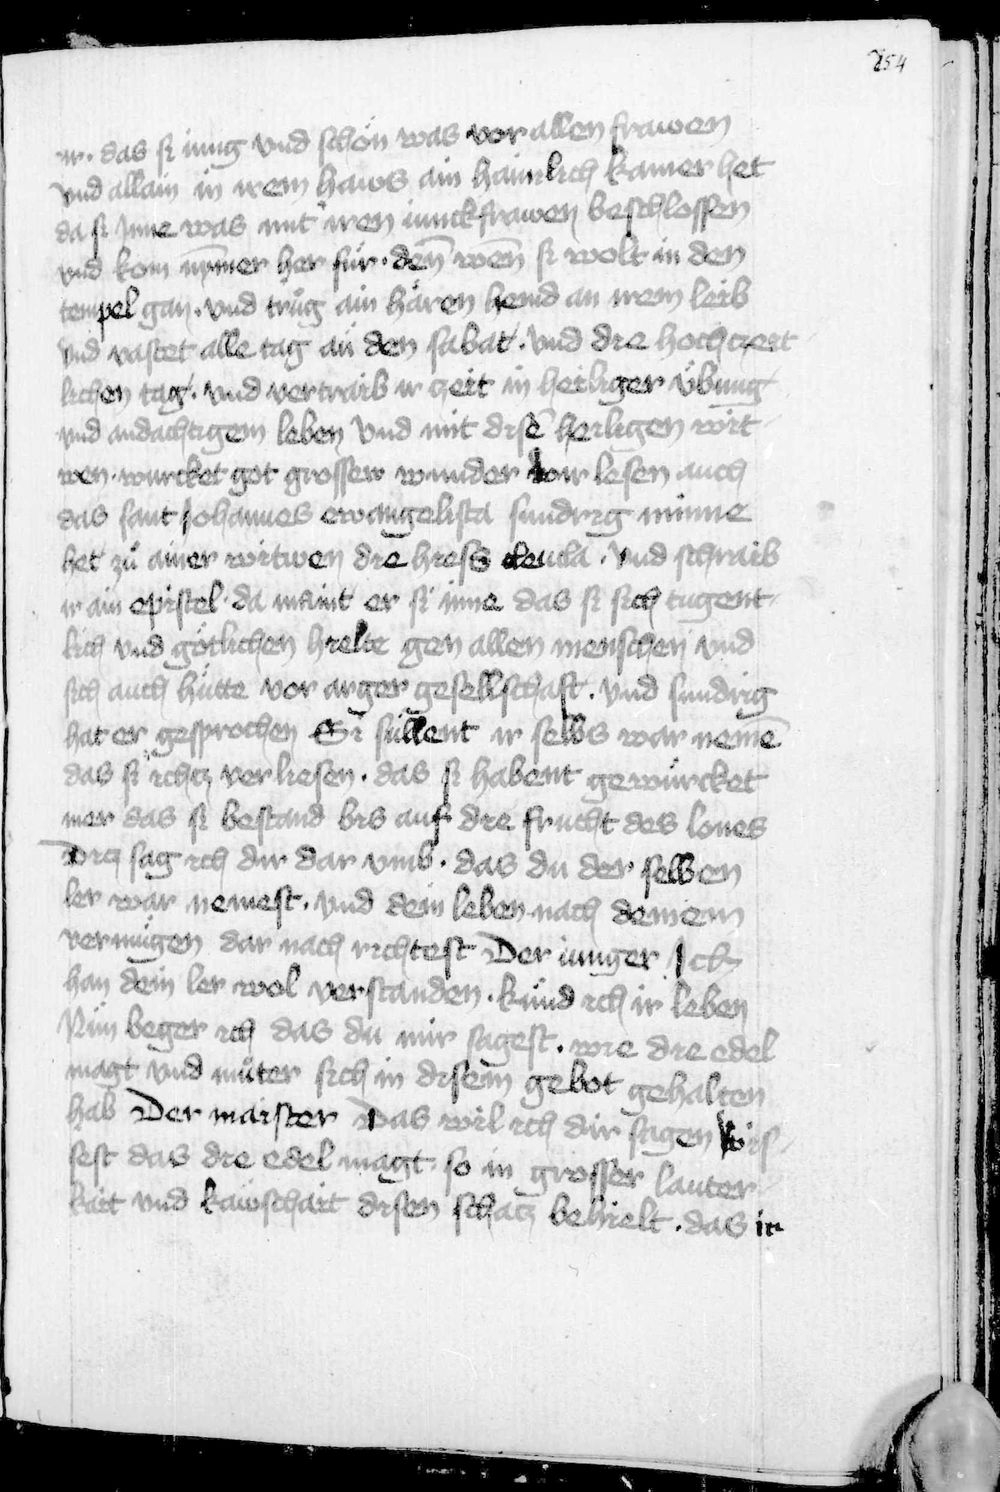 254
ir. das si iung vnd schön was vor allen frawen
vnd allain in irem haws ain haimlich kamer het
da si Inne was mit iren iunckfrawen beschlossen
vnd kom nym̄er her für. den̄ wen̄ si wolt in den
tempel gan. vnd trůg ain hären hemd an irem leib
vnd vastet alle tag an den sabat. vnd die hochczeit
lichen tag. vnd vertraib ir zeit in heiliger übung
vnd andachtigem leben vnd mit disē heiligen wit
wen. wurcket got grosser wunder wir lesen auch
das sant Johannes ewangelista sundrig minne
het zů ainer witwen die hiess electa. vnd schraib
ir ain epistel. da maint er si inne das si sich tugent
lich vnd götlichen hielte gen allen menschen vnd
sich auch hütte vor arger gesellschaft. vnd sundrig
hat er gesprochen Si süllent ir selbs war nemē
das si ichcz verliesen. das si habent gewürcket
mer das si bestand bis auf die frucht des lones
Dicz sag ich dir dar vmb. das du der selben
ler war nemest. vnd dein leben nach deinem
vermügen dar nach richtest Der iunger Ich
han dein ler wol verstanden. künd ich ir leben
Nun beger ich das du mir sagest. wie die edel
magt vnd můter sich in disem gebot gehalten
hab Der maister Das wil ich dir sagen wis
sest das die edel magt. so in grosser lauter
kait vnd kawschait disen schacz behielt. das ir